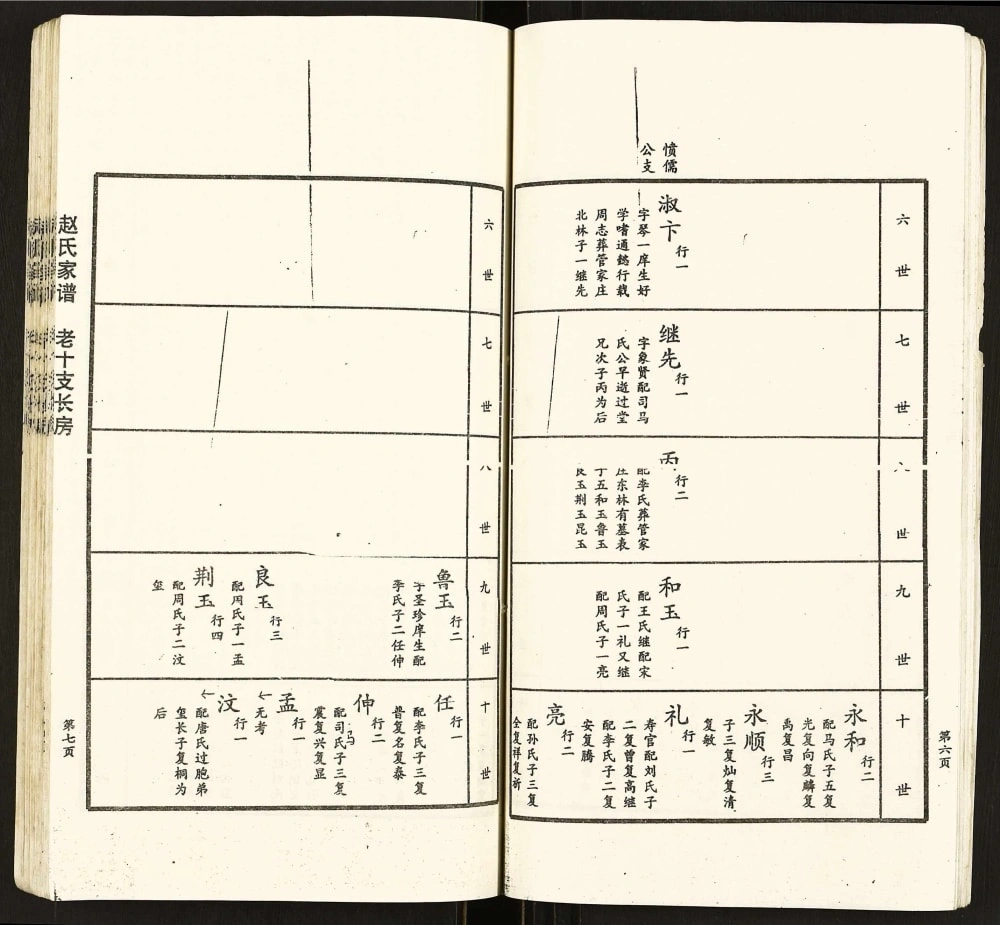 愤儒
公支
六世
淑卞 行一
字琴一庠生好
学嗜通懿行载
周志葬管家庄
北林子一继先
七世
继先 行一
字象贤配司马
氏公早逝过堂
兄次子丙为后
八世
丙 行二
配李氏葬管家
庄东林有墓表
子五和玉鲁玉
良玉荆玉昆玉
九世
和玉 行一
配王氏继配宋
氏子一礼又继
配周氏子一亮
十世
永和 行二
配马氏子五复
光复向复麟复
禹复昌
永顺 行三
子三复灿复清
复敏
礼 行一
寿官配刘氏子
二复曾复高继
配李氏子二复
安复腾
亮 行二
配孙氏子三复
全复祥复祈
第六页
六世
七世
八世
九世
鲁玉 行二
字圣珍庠生配
李氏子二任仲
良玉 行三
配周氏子一孟
荆玉 行四
配周氏子二汶
玺
十世
任 行一
配李氏子三复
普复名复泰
仲 行二
配司马氏子三复
震复兴复显
孟 行一
无考
汶 行一
配唐氏过胞弟
玺长子复桐为
后
赵氏家谱 老十支长房
第七页